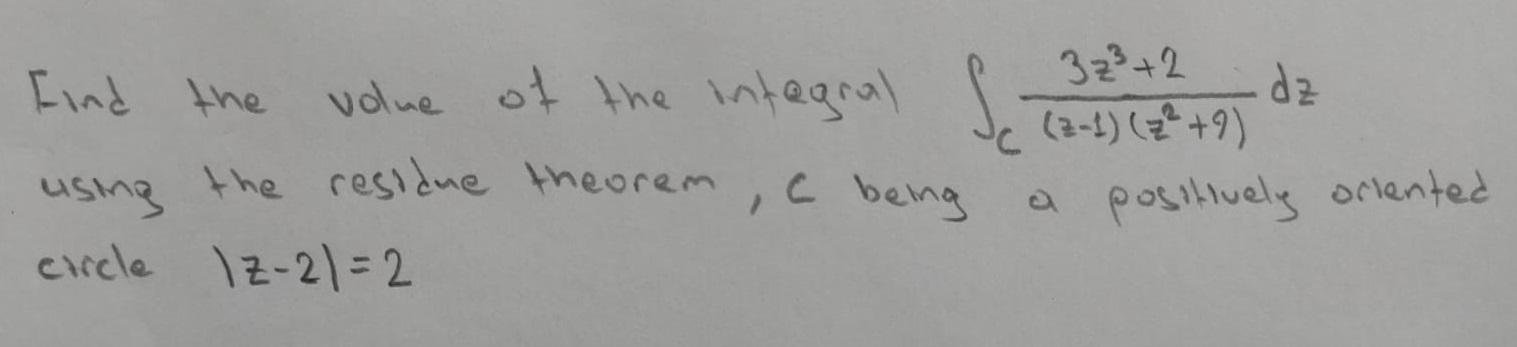 Find the value of the integral ∫_C (3z³+2)/((z-1)(z²+9)) dz
using the residue theorem, C being a positively oriented
circle |z-2|=2